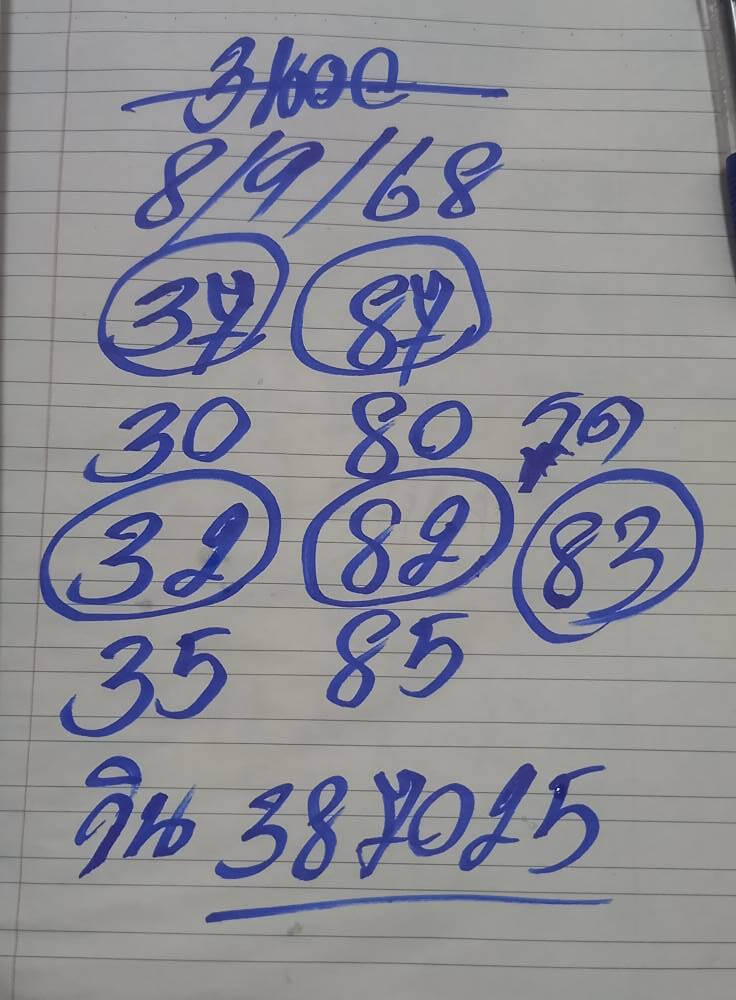 8/9/68
37 87
30 80
32 82 83
35 85
วิน 387025